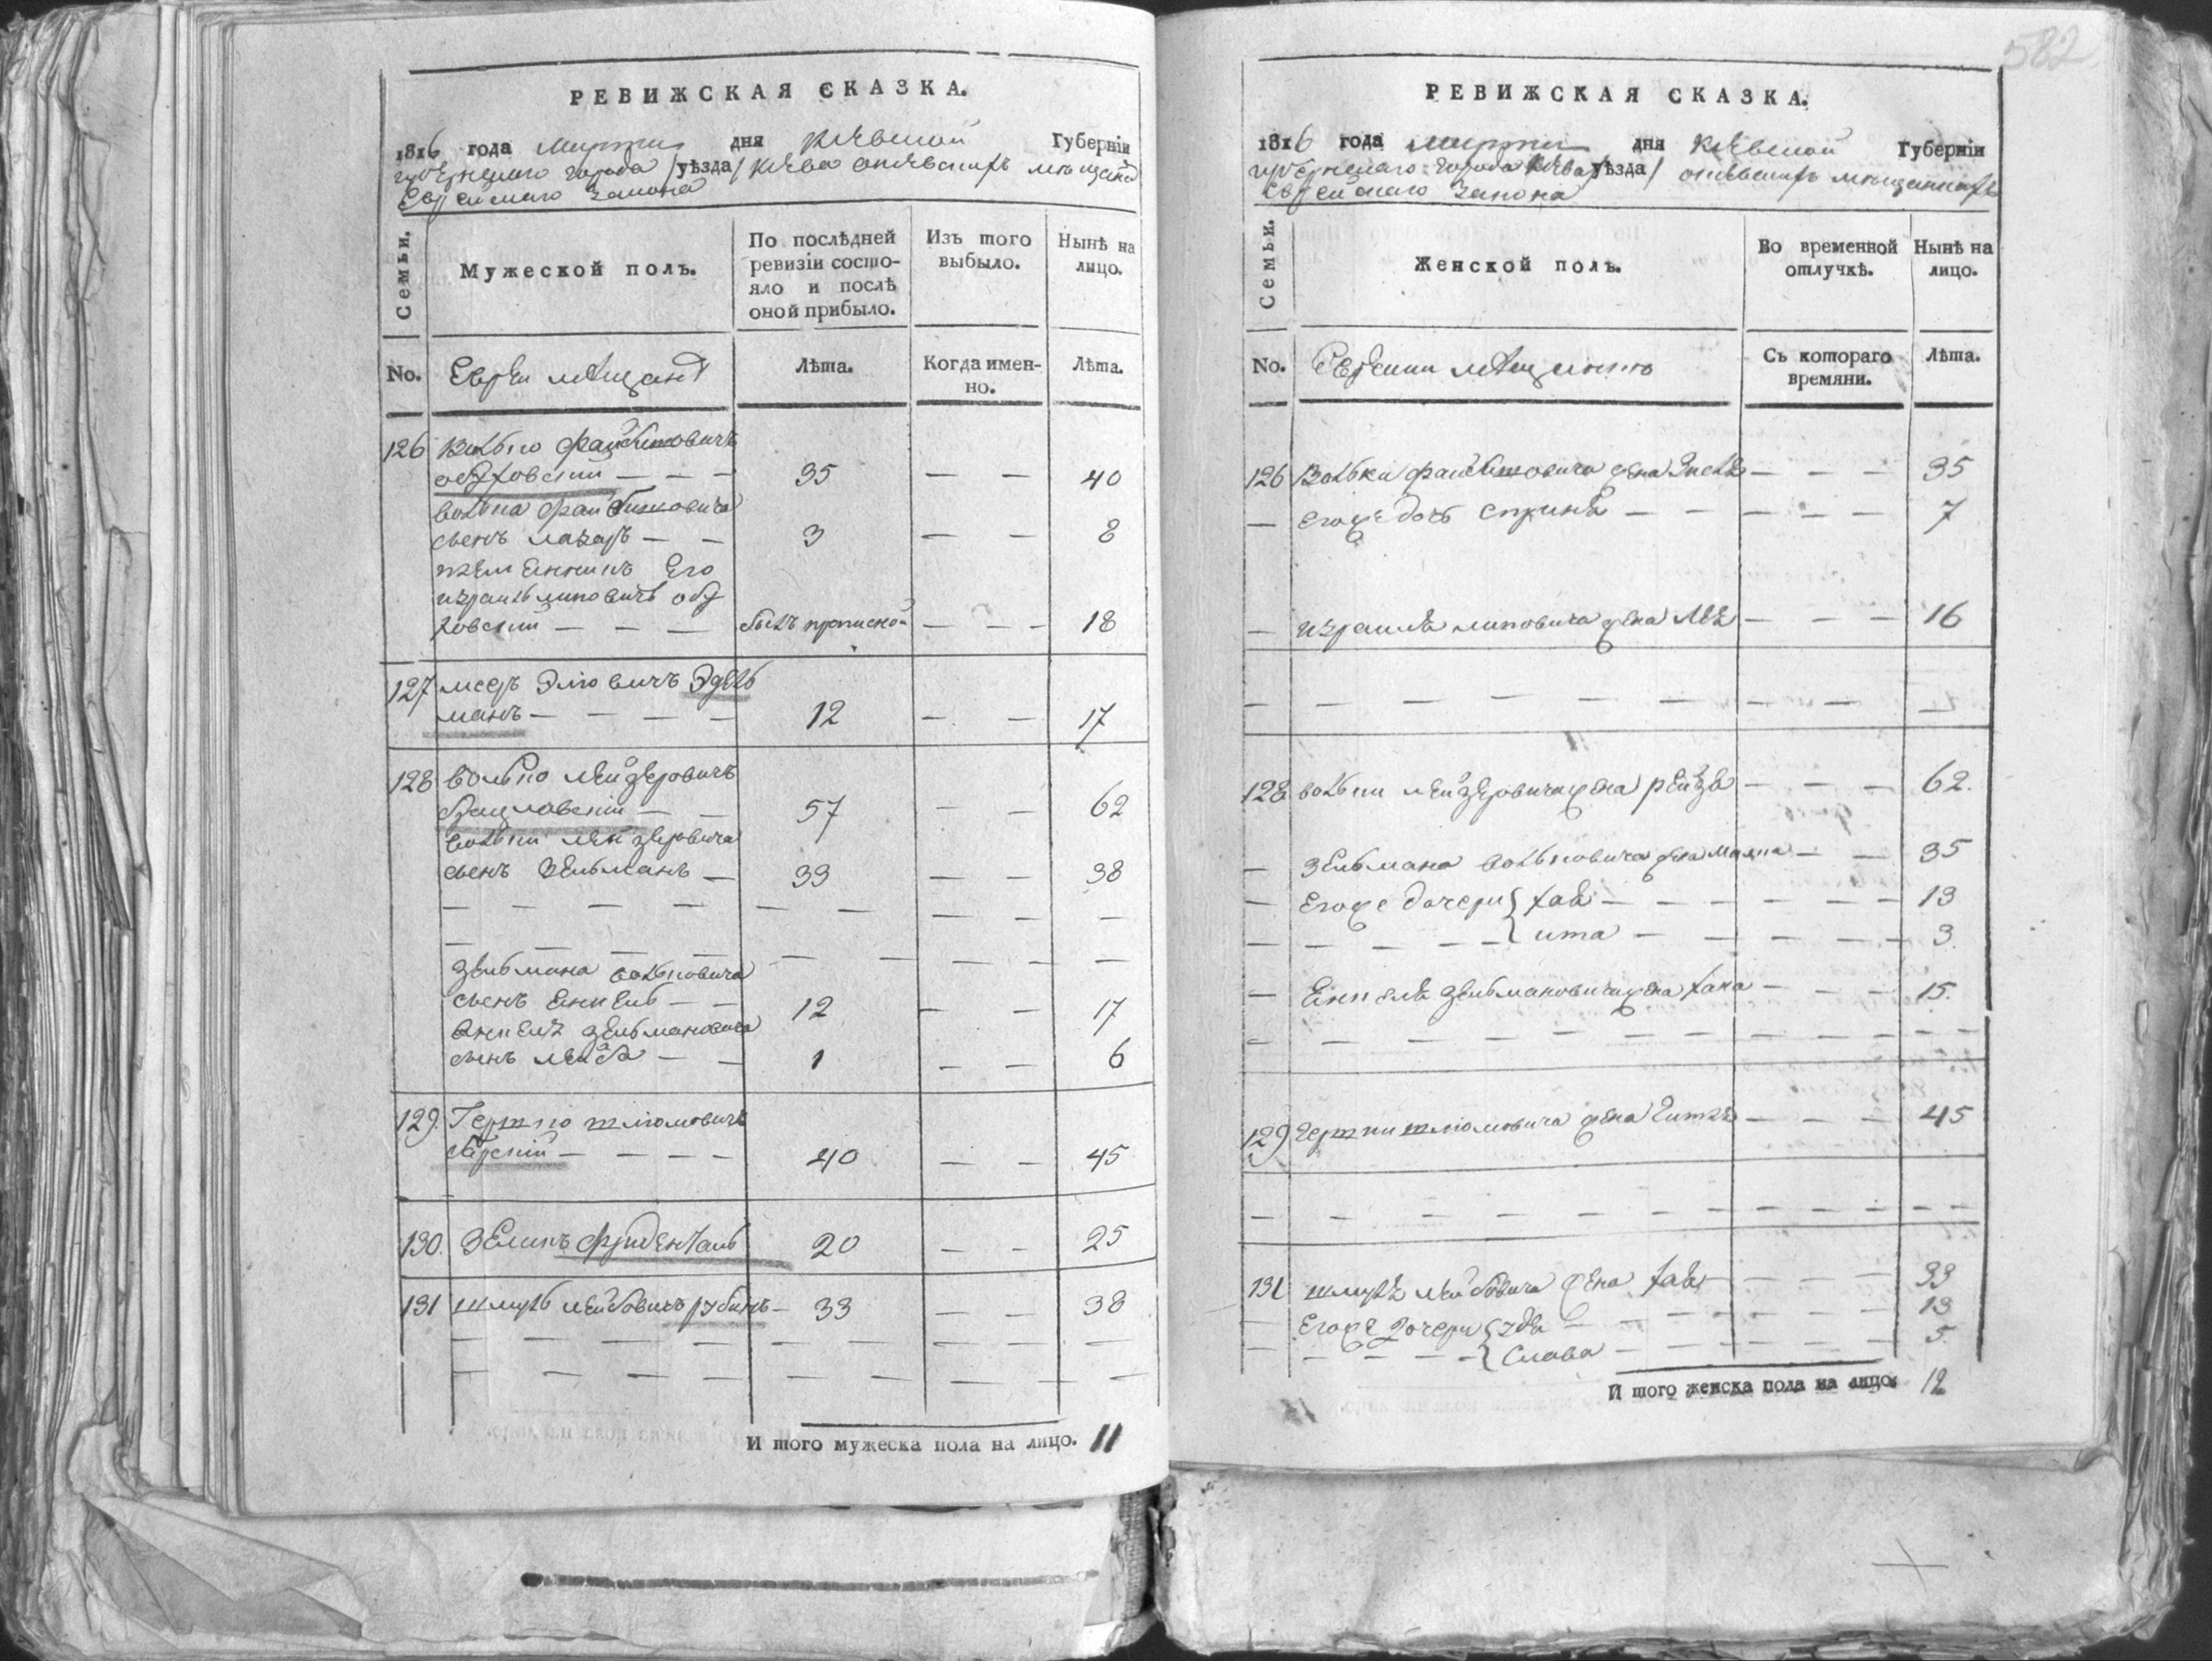 РЕВИЖСКАЯ СКАЗКА.
1816 года марта дня Кіевской Губерніи
губернскаго города /уѣзда/ Кіева о кіевскихъ мѣщанахъ
Еврейскаго закона
Семьи. Мужеской полъ. По послѣдней ревизіи состояло и послѣ оной прибыло. Изъ того выбыло. Нынѣ на лицо.
No. Евреи мѣщанѣ Лѣта. Когда именно. Лѣта.
126 Волько Файбишовичъ
— — — 35 — — 40
Волька Файбишовича
сынъ Лазарь — — 3 — — 8
племенникъ Его
Израиль Липовичъ
— — — былъ прописной — — — 18
127 Меер Элiовичъ Эдель
манъ — — — — 12 — — 17
128 Волько Лейзеровичъ
Брацловскій — — 57 — — 62
Вольки Лейзеровича
сынъ Зельманъ — 33 — — 38
Зельмана Вольковича
сынъ Енкель — — 12 — — 17
Енкеля Зельмановича
сынъ Лейба — — 1 — — 6
129. Гершко Шліомовичъ
— — — — 40 — — 45
130. Зеликъ Фриденталь 20 — — 25
131 Шмуль Лейбовичъ Рубинъ — 33 — — 38
И того мужеска пола на лицо. 11
582
РЕВИЖСКАЯ СКАЗКА.
1816 года марта дня Кіевской Губерніи
губернскаго города Кіева /уѣзда/ о кіевскихъ мѣщанкахъ
Еврейскаго закона
Семьи. Женской полъ. Во временной отлучкѣ. Нынѣ на лицо.
No. Еврейки мѣщанки Съ котораго времяни. Лѣта.
126 Вольки Файбишовича жена — — — 35
— Егоже дочь Сприня — — — — — 7
— Израиля Липовича жена Лея — — — 16
128 Вольки Лейзеровича жена Рейза — — — 62.
— Зельмана Вольковича жена Малка — — 35
— Егоже дочери { Хая — — — — — — 13
— — — — — { Ита — — — — — 3.
— Енкеля Зельмановича жена Хана — — — 15.
129 Гершки Шліомовича жена Гитля — — — 45
131 Шмуля Лейбовича жена Хая — — — 33
— Егоже дочери { — — — — — 13
— — — — — { Слава — — — — — 5.
И того женска пола на лицо. 12